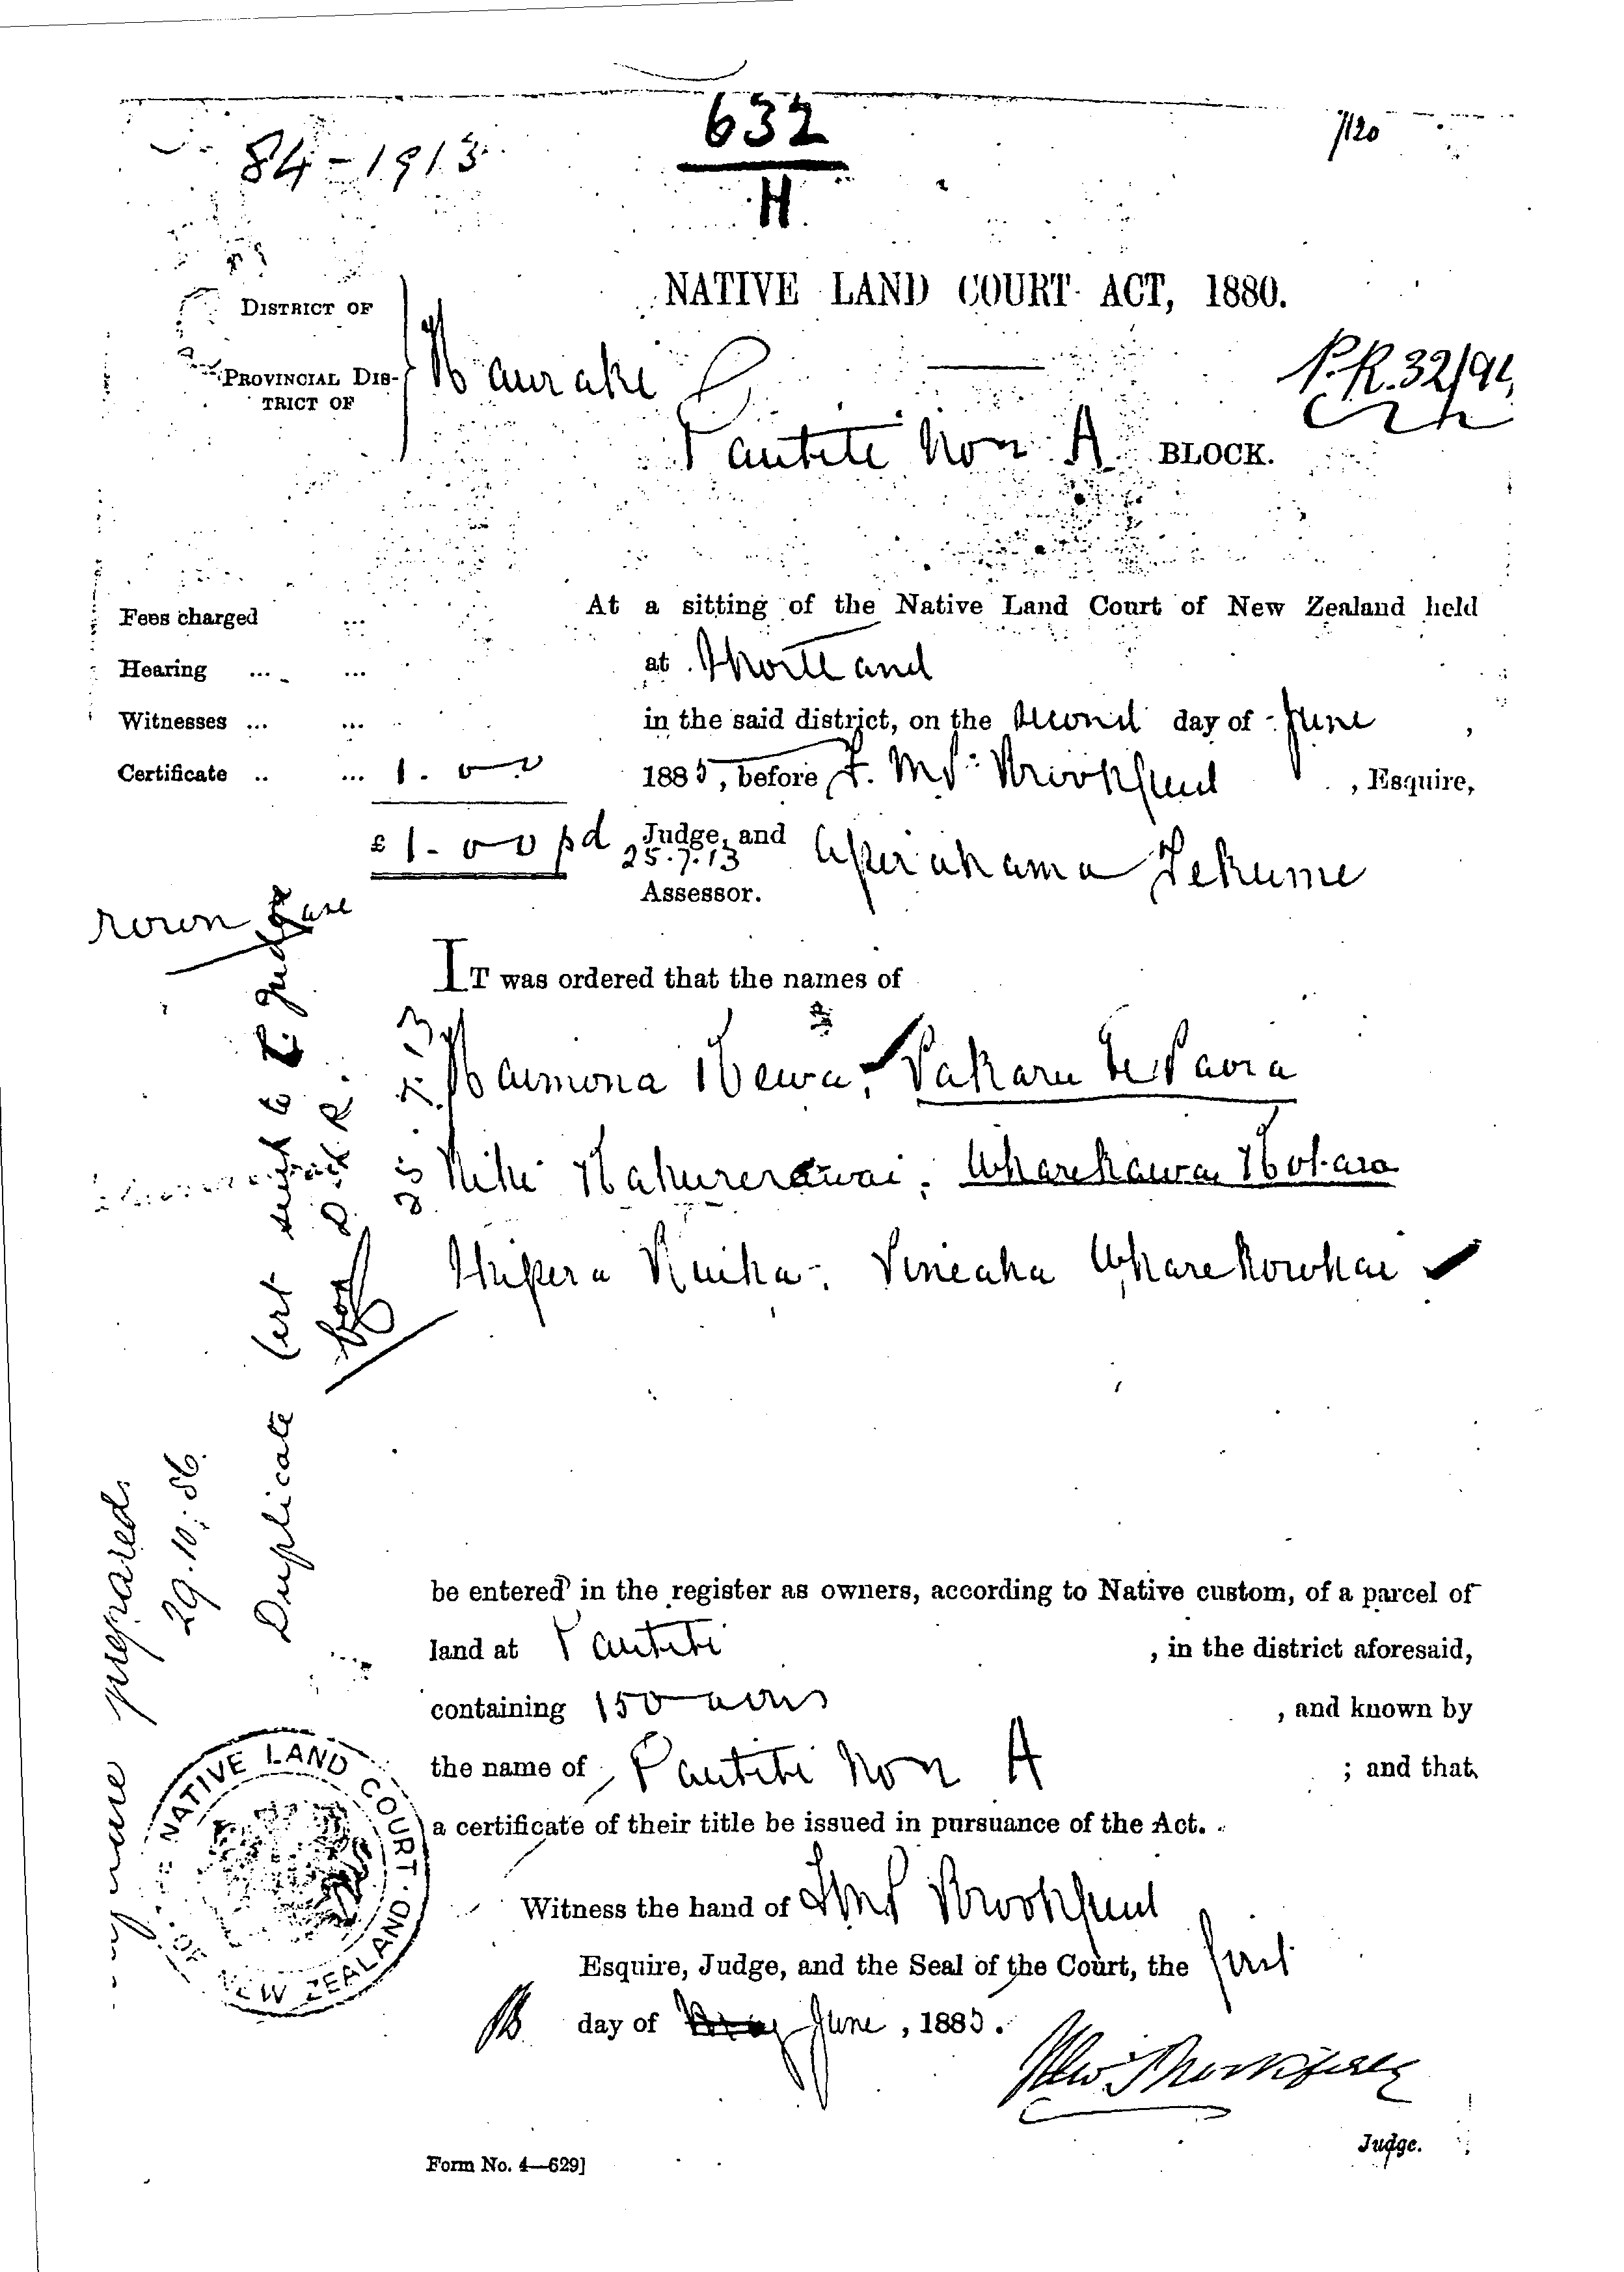 84-1913
632
H
7120
NATIVE LAND COURT ACT, 1880.
DISTRICT OF
PROVINCIAL DIS-
TRICT OF
Hauraki
P.R. 32/94
Pautiti Non A BLOCK.
At a sitting of the Native Land Court of New Zealand held
at Shortland
in the said district, on the second day of June ,
1885, before F. M. P. Brookfield , Esquire,
Judge, and Aperahama Tekume
25.7.13
Assessor.
Fees charged ...
Hearing ... ...
Witnesses ... ...
Certificate .. ... 1.00
£ 1.00 pd
IT was ordered that the names of
Haimona Hewa, Pakara te Paora
Wharekawa
Hipera Vineaha Wharekowhai
be entered in the register as owners, according to Native custom, of a parcel of
land at Pautiti , in the district aforesaid,
containing 150 acres , and known by
the name of Pautiti Non A ; and that
a certificate of their title be issued in pursuance of the Act.
Witness the hand of F M P Brookfield
Esquire, Judge, and the Seal of the Court, the first
day of June, 1885.
Judge.
Form No. 4—629]
Duplicate Cert sent to Judge
for D.L.R.
25.7.13
prepared
29.10.86
NATIVE LAND COURT
OF NEW ZEALAND